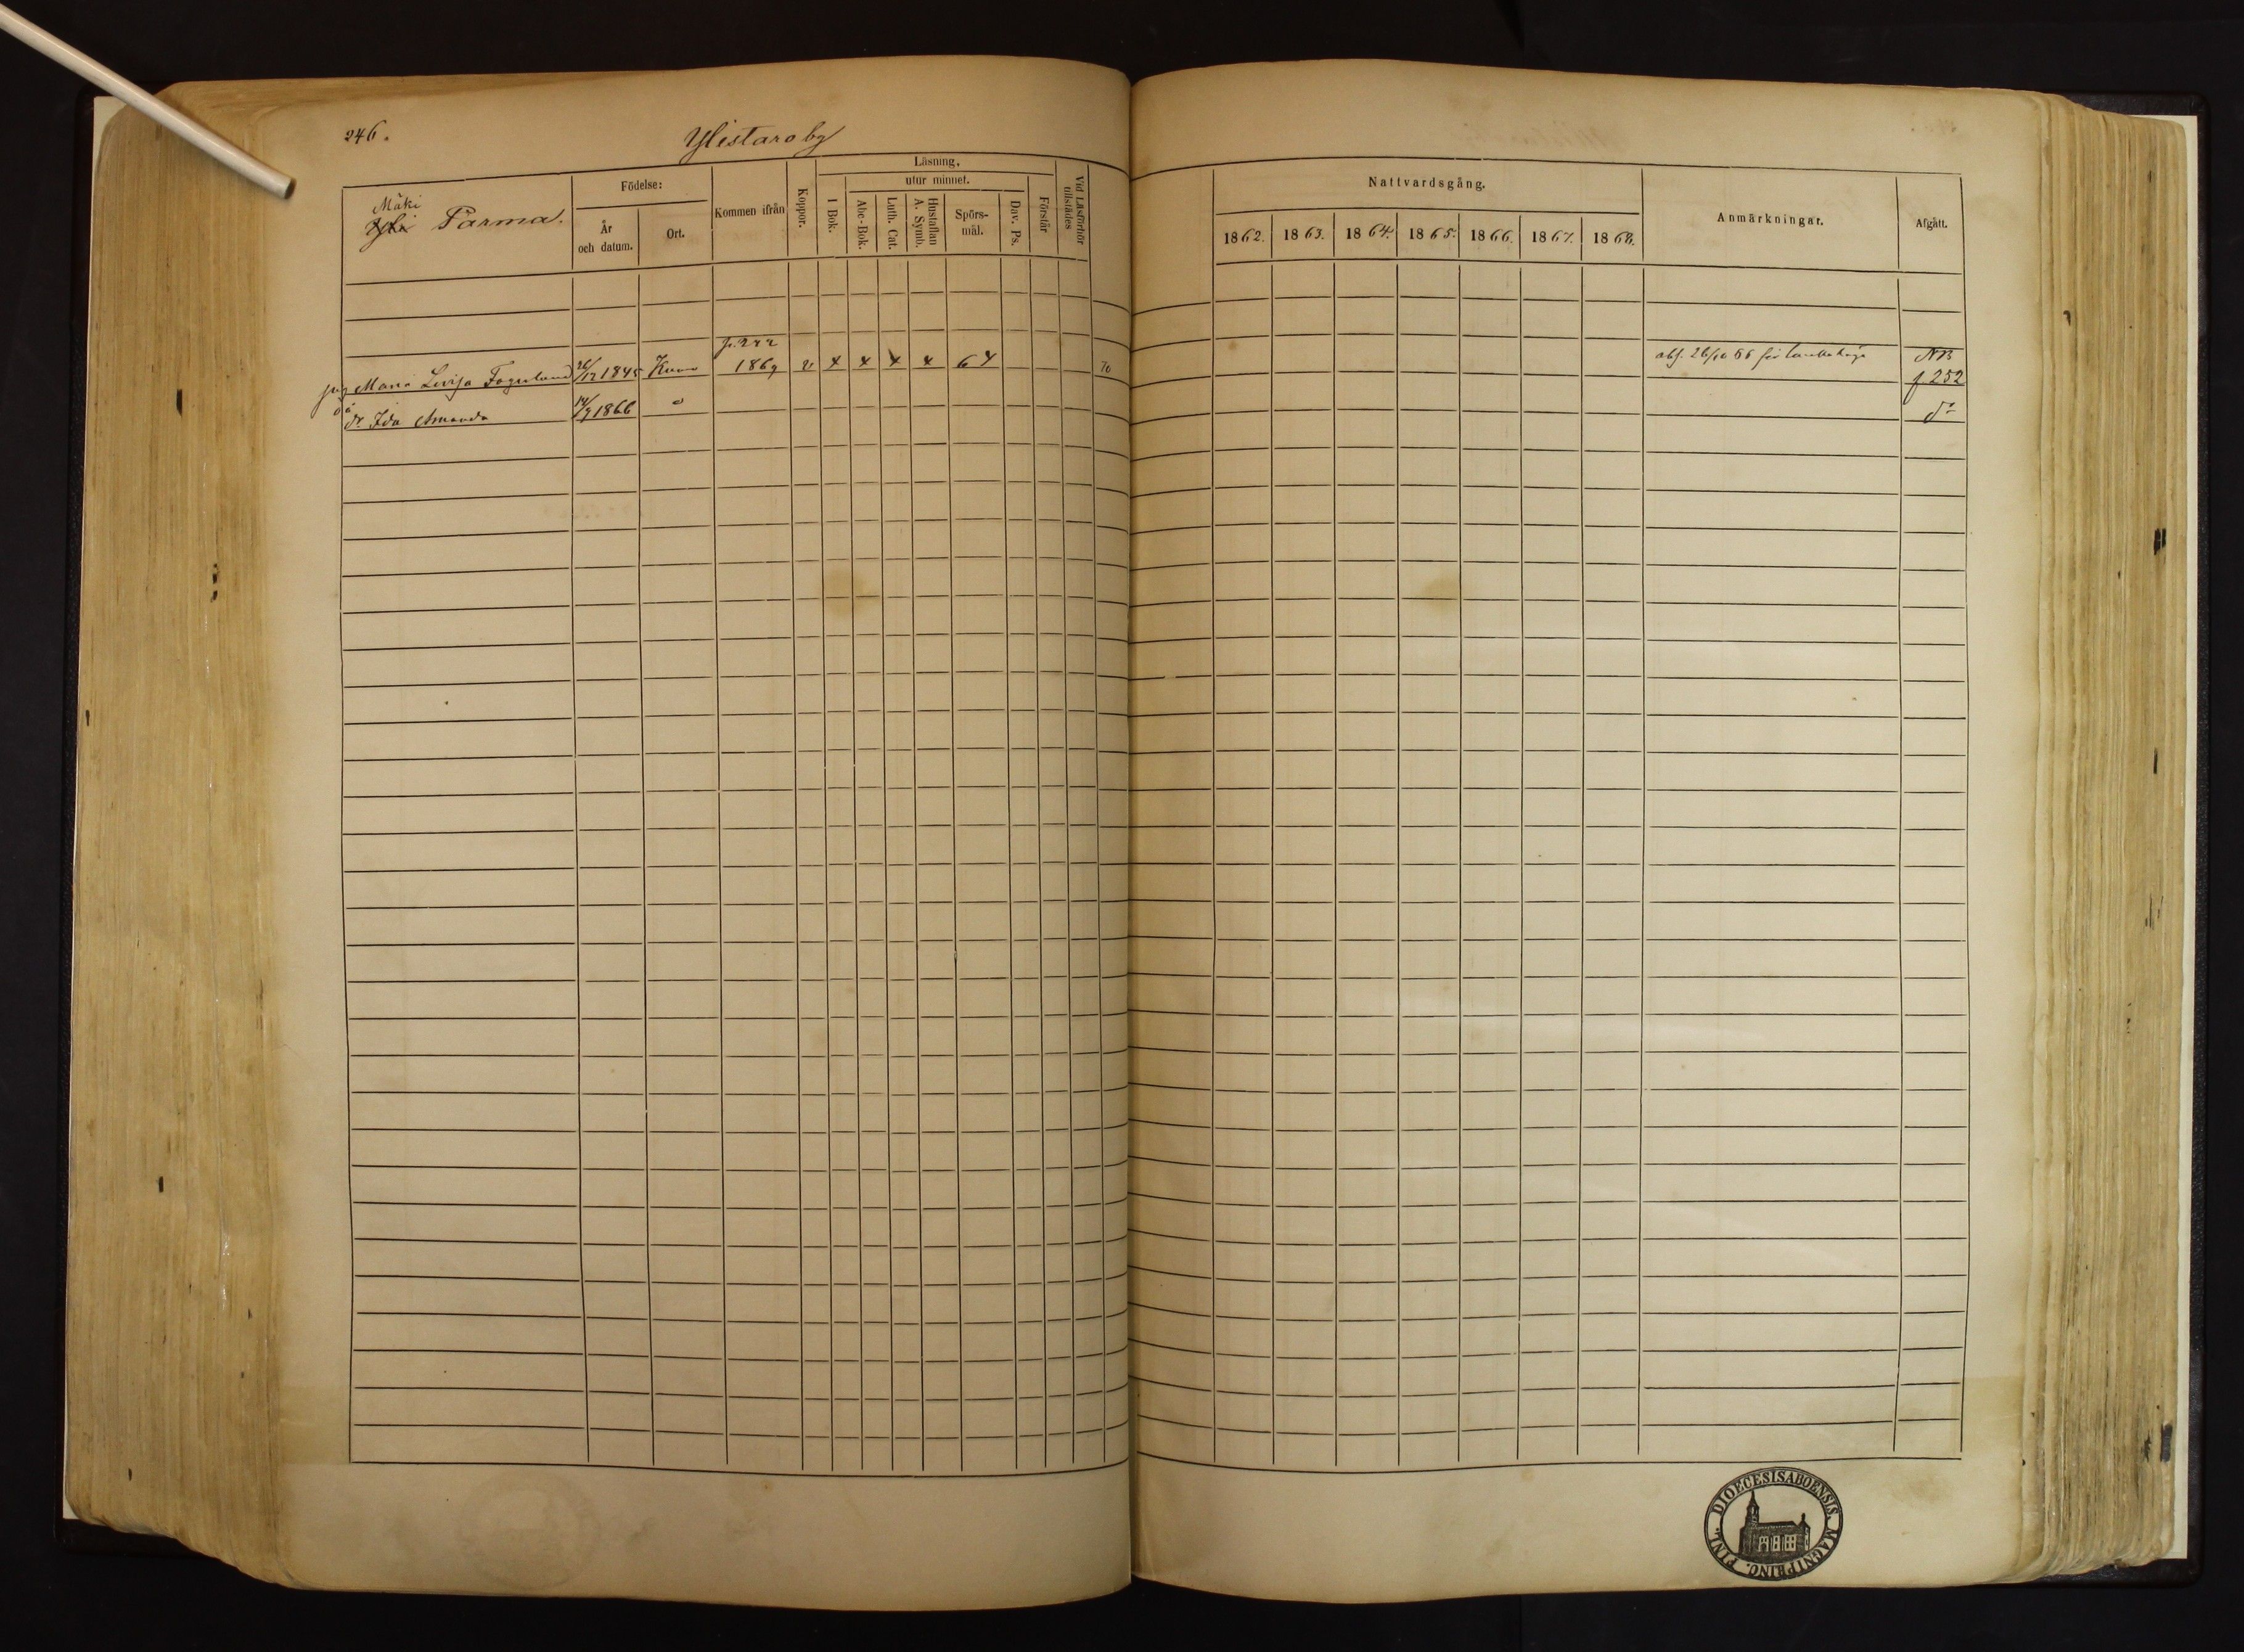 246.
Ylistaro by
Mäki
Yli Parma.
Födelse:
År
och datum.
Ort.
Kommen ifrån
Koppor.
Läsning.
utur minnet.
I Bok.
Abc-Bok.
Luth. Cat.
Hustaflan
A. Symb.
Spörs-
mål.
Dav. Ps.
Förstår
Vid Läsförhör
tillstädes
Nattvardsgång.
1862.
1863.
1864.
1865.
1866.
1867.
1868.
Anmärkningar.
Afgått.
p. 222
Maria Lovisa Fagerlund 26/12 1845 1869 v x x x x 64 70
abs. 26/10 66 för NB
f 252
dr Ida Amanda 14/9 1866 do
DIOECESIS ABOENSIS. MAGNI PRINC. FINL.